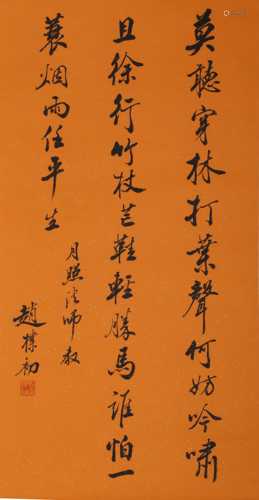 莫聽穿林打葉聲何妨吟嘯
且徐行竹杖芒鞋輕勝馬誰怕一
蓑烟雨任平生
月照法師教
趙樸初